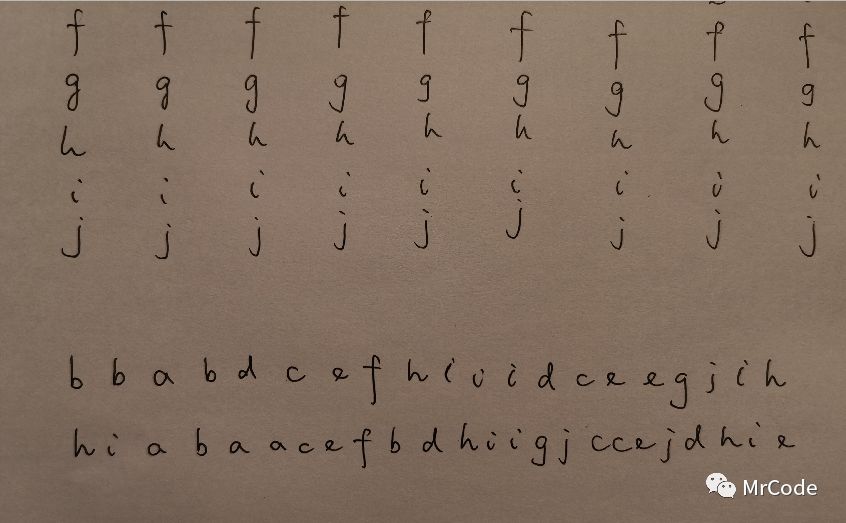 f f f f f f f f f
g g g g g g g g g
h h h h h h h h h
i i i i i i i i i
j j j j j j j j j
b b a b d c e f h i i i d c e e g j i h
h i a b a a c e f b d h i i g j c c e j d h i e
MrCode